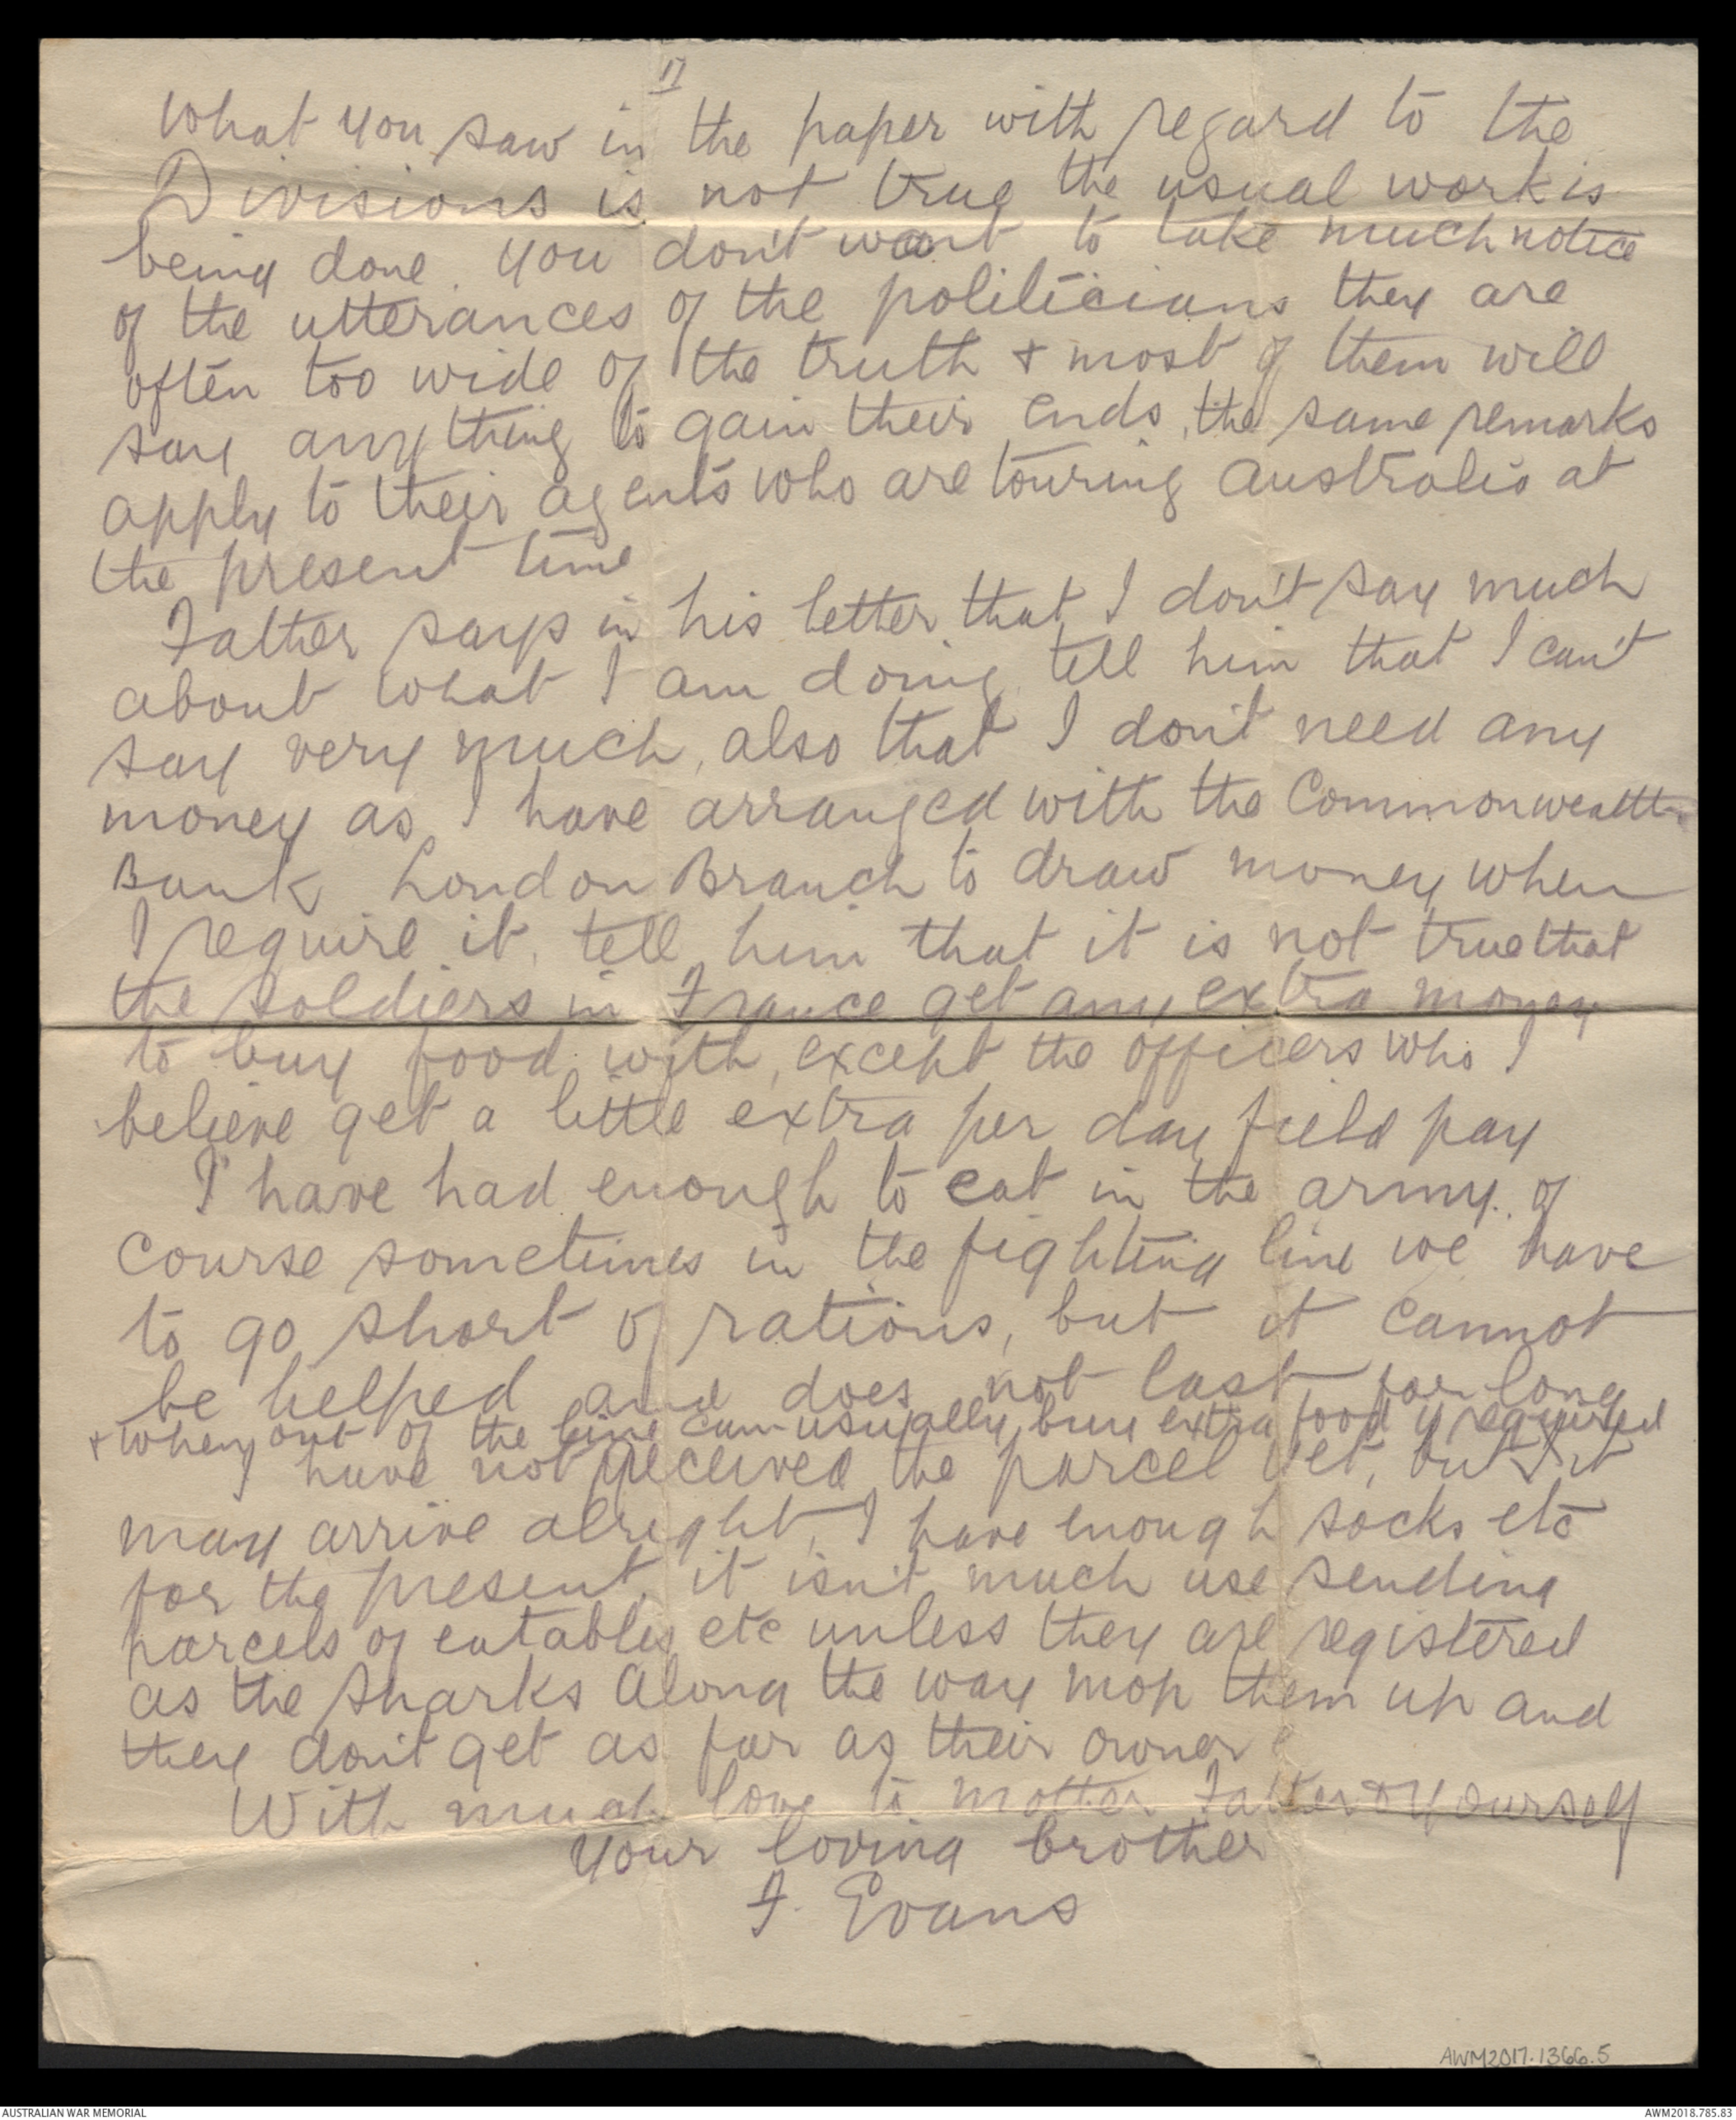 17
What you saw in the paper with regard to the
Divisions is not true the usual work is
being done. you don't want to take much notice
of the utterances of the politicians they are
often too wide of the truth & most of them will
say anything to gain their ends, the same remarks
apply to their agents who are touring Australia at
the present time
Father says in his letter that I don't say much
about what I am doing, tell him that I can't
say very much, also that I don't need any
money as I have arranged with the Commonwealth
Bank London Branch to draw money when
I require it. tell him that it is not true that
the soldiers in France get any extra money
to buy food with, except the officers who I
believe get a little extra per day field pay
I have had enough to eat in the army. of
course sometimes in the fighting line we have
to go short of rations, but it cannot
be helped and does not last for long
& when out of the line can usually buy extra food if required
I have not received the parcel yet, but it
may arrive alright, I have enough socks etc
for the present, it isn't much use sending
parcels of eatables etc unless they are registered
as the sharks along the way mop them up and
they don't get as far as their owner
With much love to mother Father & Yourself
Your loving brother
F. Evans
AWM2017.1366.5
AUSTRALIAN WAR MEMORIAL
AWM2018.785.83